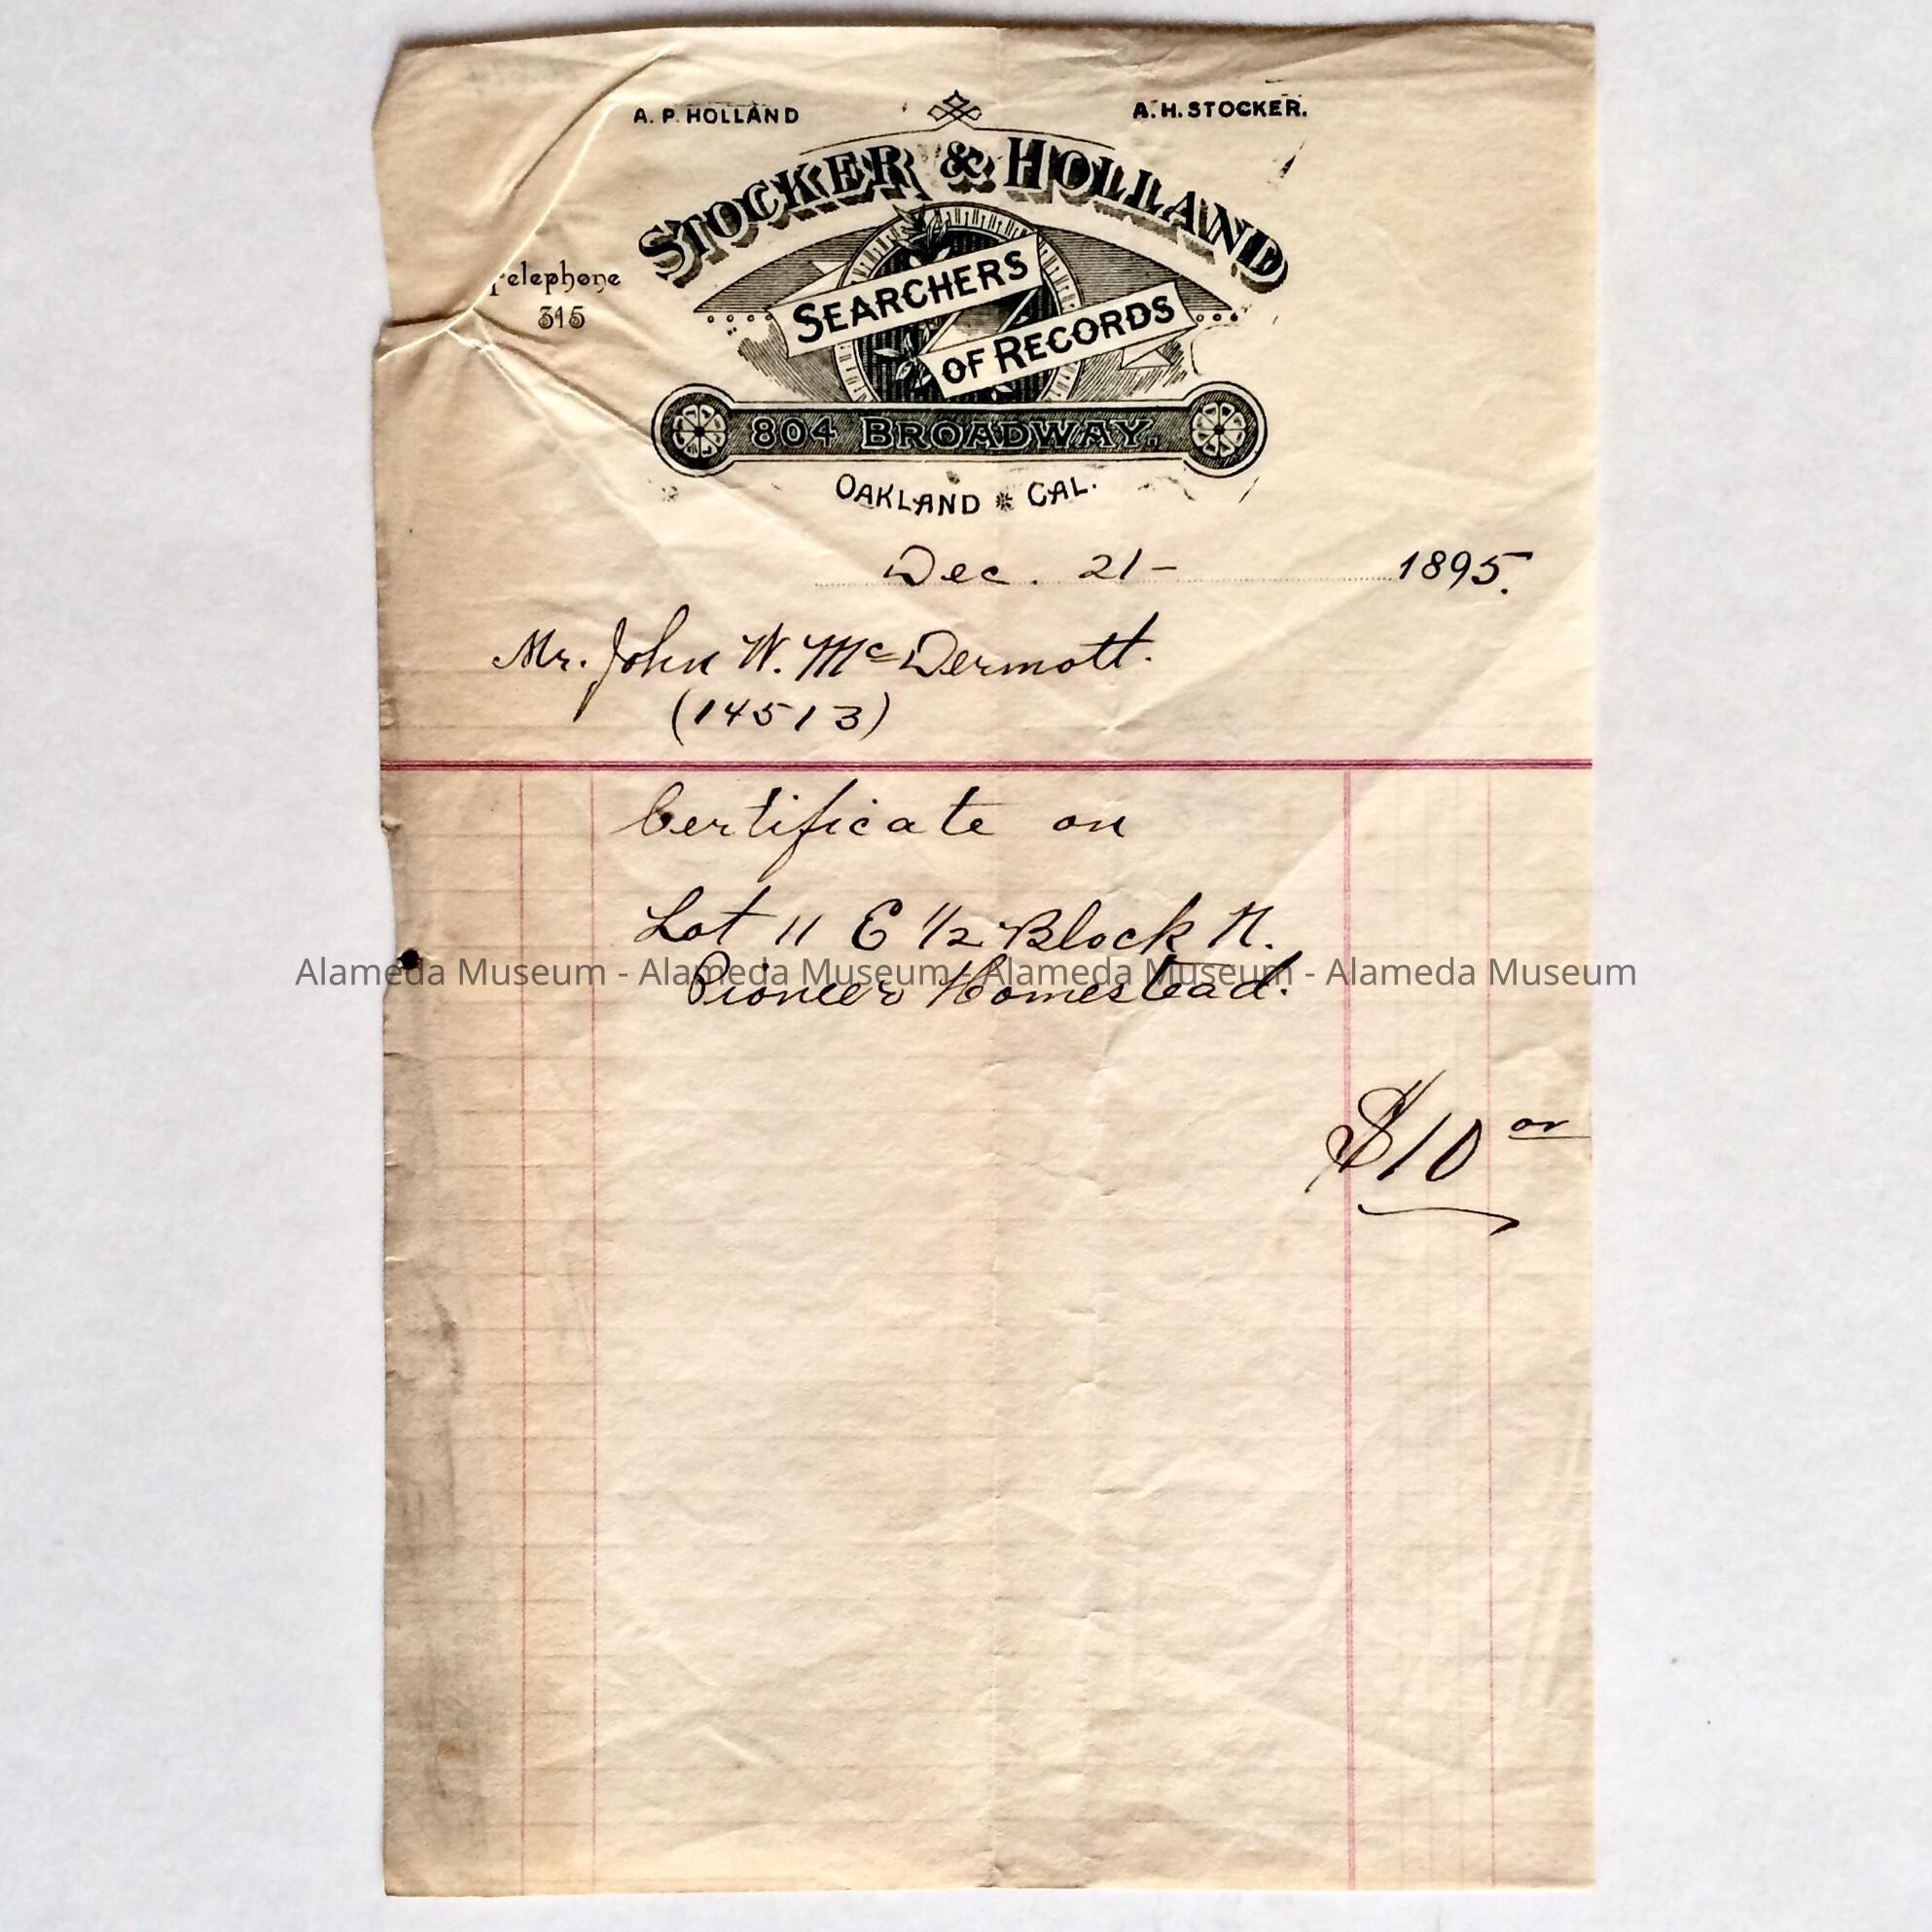 A. P. HOLLAND
A. H. STOCKER.
STOCKER & HOLLAND
Telephone
315
SEARCHERS
OF RECORDS
804 BROADWAY.
OAKLAND * CAL.
Dec. 21- 1895.
Mr. John W. McDermott.
(14513)
Certificate on
Lot 11 E 1/2 Block N.
Pioneer Homestead.
Alameda Museum - Alameda Museum - Alameda Museum - Alameda Museum
$10 00